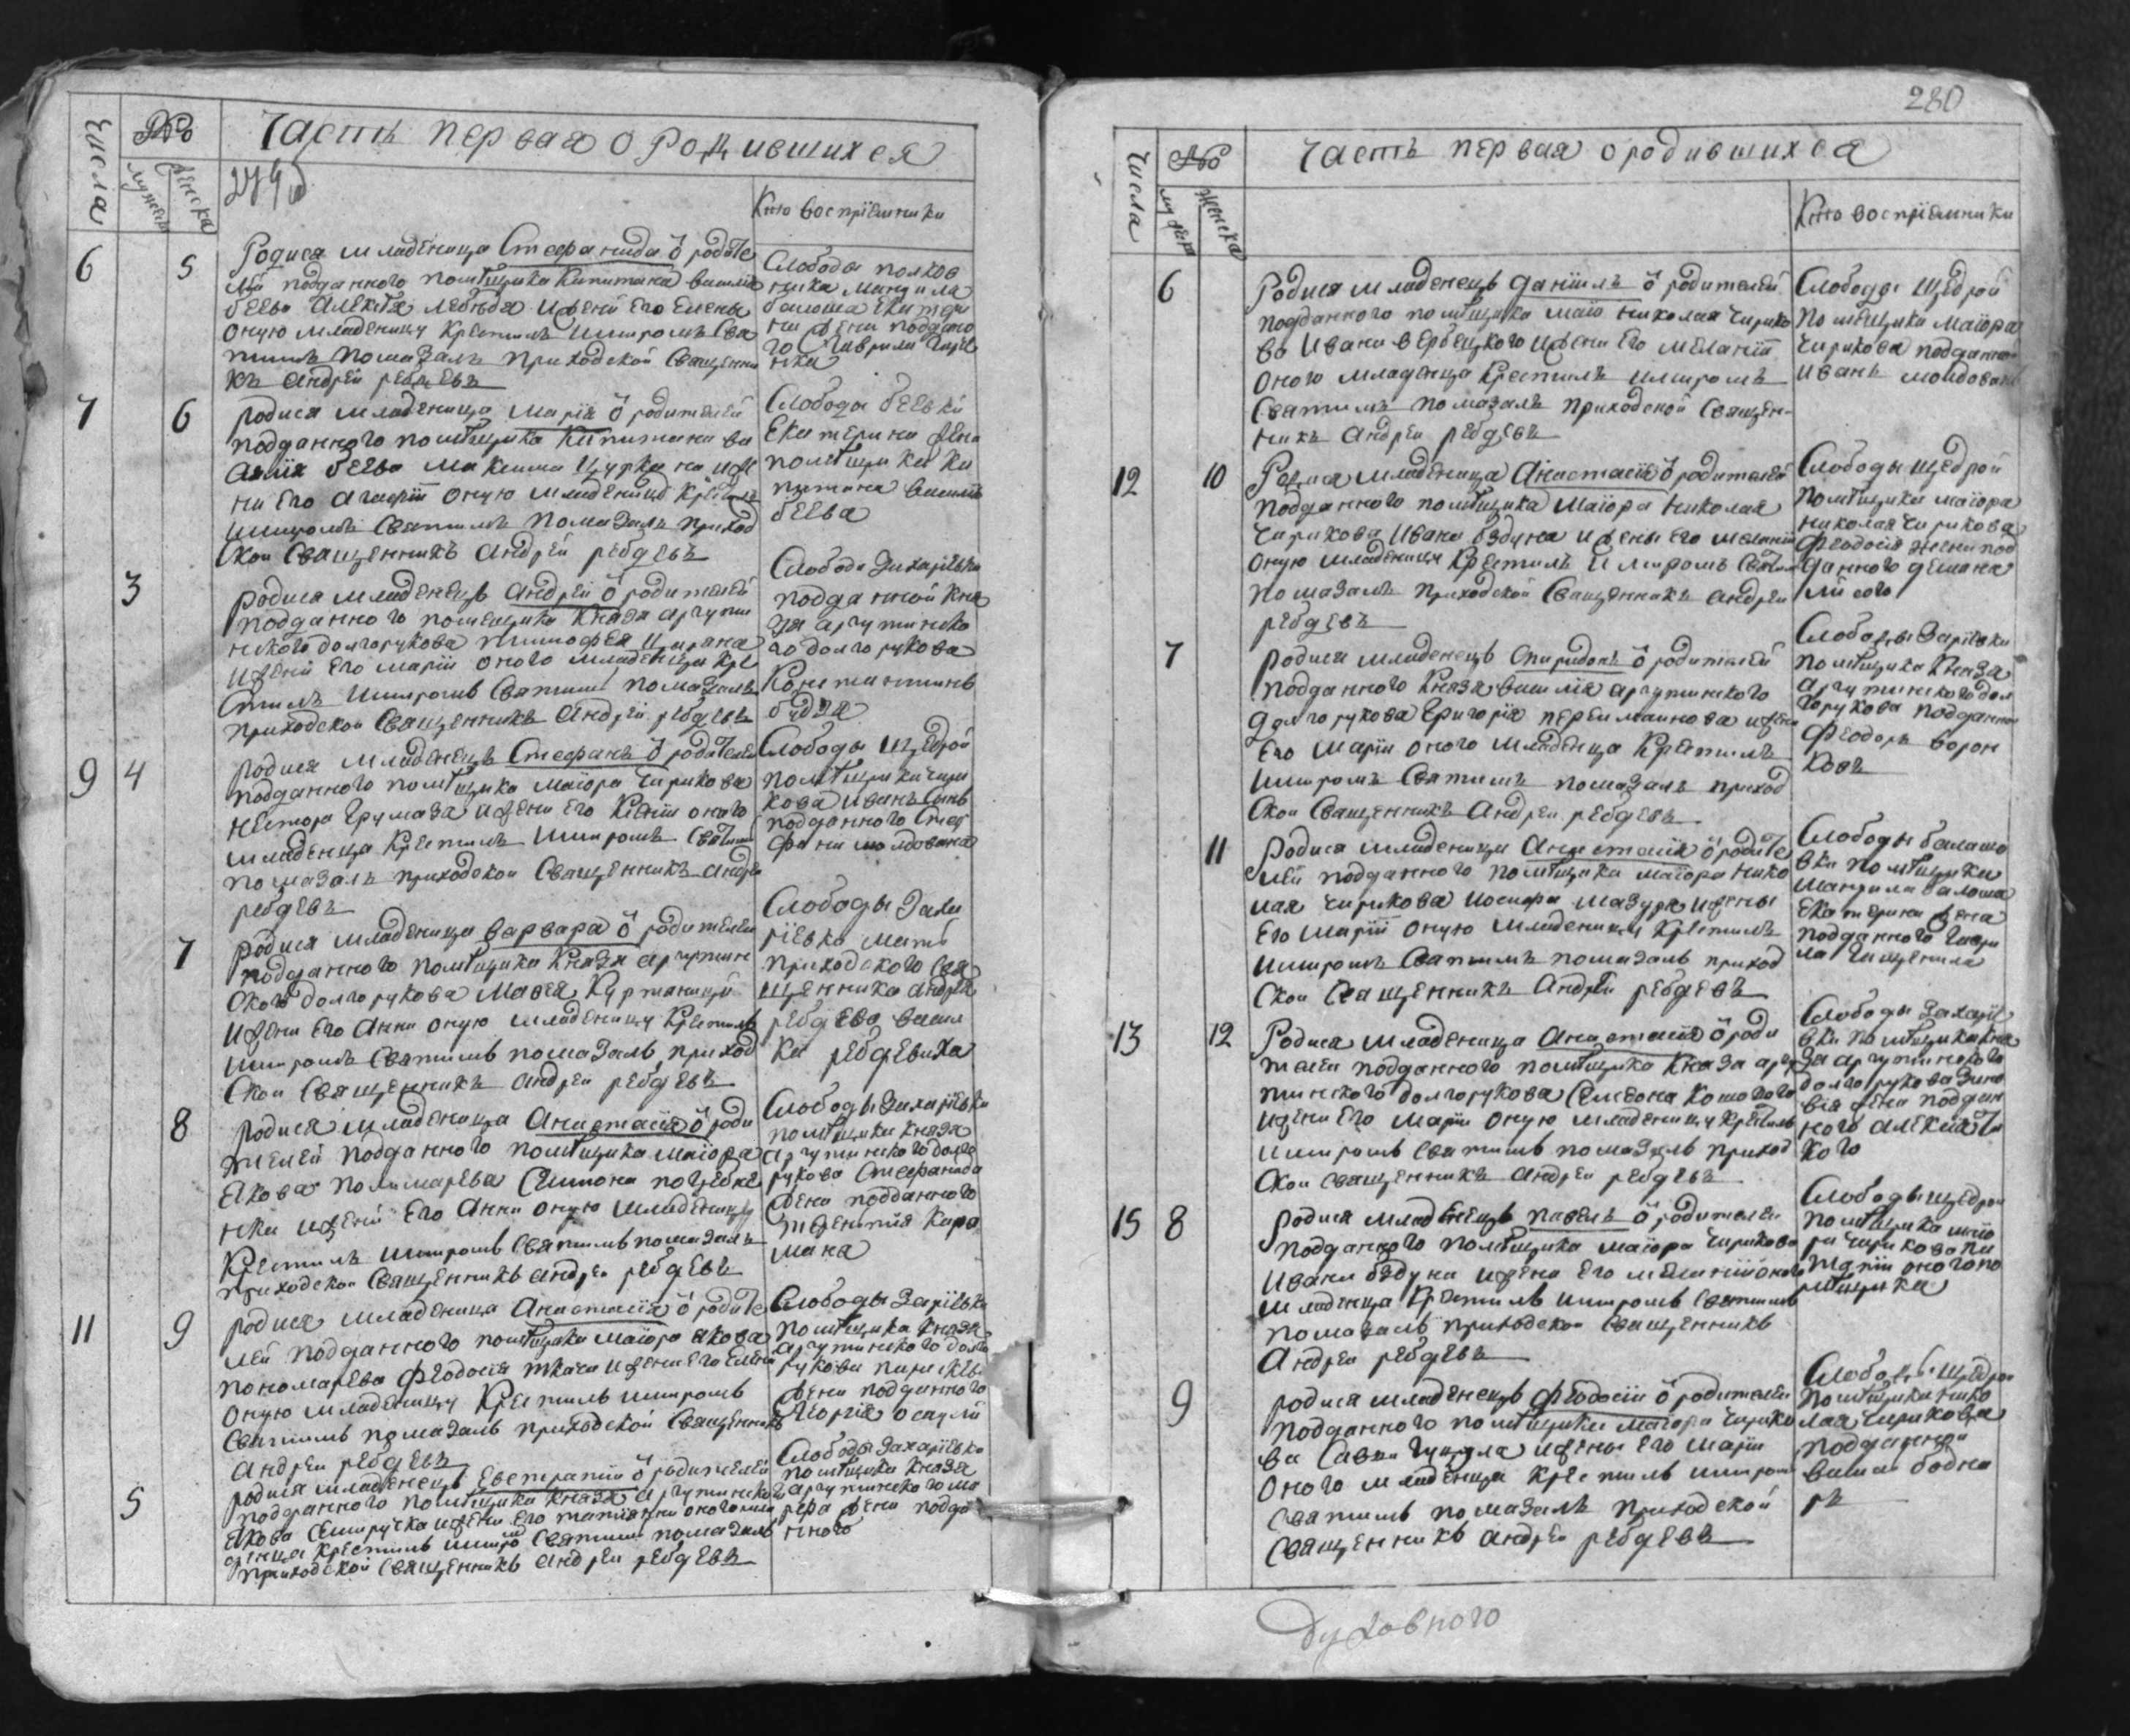 Числа
№
мужеска
женска
Часть первая о родившихся
Кто воспрiемники
6 5
Родися младеница Стефанида ѿ родите
лей подданного помѣщика капитана василiя
беева Алекѣя лебѣдя и жени его елены
оную младеницу крестилъ имиромъ свя
тимъ помазалъ приходской священни
къ андрей ребдевъ
Слободы полков
ника
екатери
на жена поддано
го гаврила
7 6
родися младеница марiя ѿ родителей
подданного помѣщика капитана ва
силiя беева максима цуркана и же
ни его агафiи оную младеницу крестилъ
имиромъ святимъ помазалъ приход
ской священникъ андрей ребдевъ
Слободы беевки
Екатерина жена
помѣщика ка
питана василiя
беева
3
родися младенецъ андрей ѿ родителей
подданного помещика князя аргутин
ского долгорукова тимофея
и жени его марiи оного младенца кре
стилъ имиромъ святимъ помазалъ
приходской священникъ андрей ребдевъ
Слободы Захарiевки
подданной кня
зя аргутинско
го долгорукова
Константинъ
будза
9 4
родися младенецъ Стефанъ ѿ родителей
подданного помѣщика маiора чирикова
нестора грумаза и жени его Ксенiи оного
младенца крестилъ имиромъ святимъ
помазалъ приходской священникъ андрей
ребдевъ
Слободы щедрой
помѣщика чири
кова иванъ синъ
подданного Сте
фана молдована
7
родися младеница варвара ѿ родителей
подданного помѣщика князя аргутин
ского долгорукова Мафея
и жени его анни оную младеницу крестилъ
имиромъ святимъ помазалъ приход
ской священникъ андрей ребдевъ
Слободы Заха
рiевки мать
приходского свя
щенника андрея
ребдева васил
ка ребдевиха
8
родися младеница Анастасiя ѿ роди
телей подданного помѣщика маiора
якова пономарева Симиона
и жени его анни оную младеницу
крестилъ имиромъ святимъ помазалъ
приходской священникъ андрей ребдевъ
Слободы Захарiевки
помѣщика князя
аргутинского долго
рукова Стефанида
жена подданного
кара
мана
11 9
родися младеница Анастасiя ѿ родите
лей подданного помѣщика маiора якова
пономарева Феодосiя ткача и жени его елени
оную младеницу крестилъ имиромъ
святимъ помазалъ приходской священникъ
андрей ребдевъ
Слободы Захарiевки
помѣщика князя
аргутинского долго
рукова параскева
жена подданного
георгiя
5
родися младенецъ Евстратiй ѿ родителей
подданного помѣщика князя аргутинского
якова и жени его татiянни оного мла
денца крестилъ имиро святимъ помазалъ
приходской священникъ андрей ребдевъ
Слободы Захарiевки
помѣщика князя
аргутинского
жена подда
ного
280
Числа
№
мужеска
женска
Часть первая о родившихся
Кто воспрiемники
6
Родися младенецъ данiилъ ѿ родителей
подданного помѣщика маiо николая чирико
ва ивана вербецкого и жени его меланiи
оного младенца крестилъ имиромъ
святимъ помазалъ приходской священ-
никъ андрей ребдевъ
Слободы щедрой
помѣщика маiора
чирикова подданной
иванъ молдованъ
12 10
Родися младеница Анастасiя ѿ родителей
подданного помѣщика маiора николая
чирикова ивана бздуна и жены его меланiи
оную младеницу крестилъ и миромъ святимъ
помазалъ приходской священникъ андрей
ребдевъ
Слободы щедрой
помѣщика маiора
николая чирикова
феодосiя жена под
данного демяна
лисого
7
родися младенецъ спиридонъ ѿ родителей
подданного князя василiя аргутинского
долгорукова григорiя и жени
его марiи оного младенца крестилъ
имиромъ святимъ помазалъ приход
ской священникъ андрей ребдевъ
Слободы Захарiевки
помѣщика князя
аргутинского дол
горукова подданной
феодоръ ворон
ковъ
11
родися младеница Анастасiя ѿ родите
лей подданного помѣщика маiора нико
лая чирикова иосифа мазура и жены
его марiи оную младеницу крестилъ
имиромъ святимъ помазалъ приход
ской священникъ андрей ребдевъ
Слободы балашо
вки помѣщика
екатерина жена
подданного гаври
ла
13 12
Родися младеница Анастасiя ѿ роди
телей подданного помѣщика князя аргу
тинского долгорукова Симеона
и жени его марiи оную младеницу крестилъ
имиромъ святимъ помазалъ приход
ской священникъ андрей ребдевъ
Слободы Захарiе
вки помѣщика кня
зя аргутинского
долгорукова Зино
вiя жена поддан
ного
15 8
родися младенецъ павелъ ѿ родителей
подданного помѣщика маiора чирикова
ивана бздуна и жени его меланiи оного
младенца крестилъ имиромъ святимъ
помазалъ приходской священникъ
андрей ребдевъ
Слободы щедрой
помѣщика маiо
ра чирикова
оного по
мѣщика
9
родися младенецъ феодосiй ѿ родителей
подданного помѣщика маiора чирико
ва Савы и жены его марiи
оного младенца крестилъ имиромъ
святимъ помазалъ приходской
священникъ андрей ребдевъ
Слободы щедрой
помѣщика нико
лая чирикова
подданной
василъ бодна
ръ
духовного